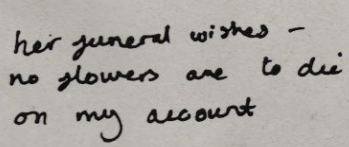 her funeral wishes –
no flowers are to die
on my account